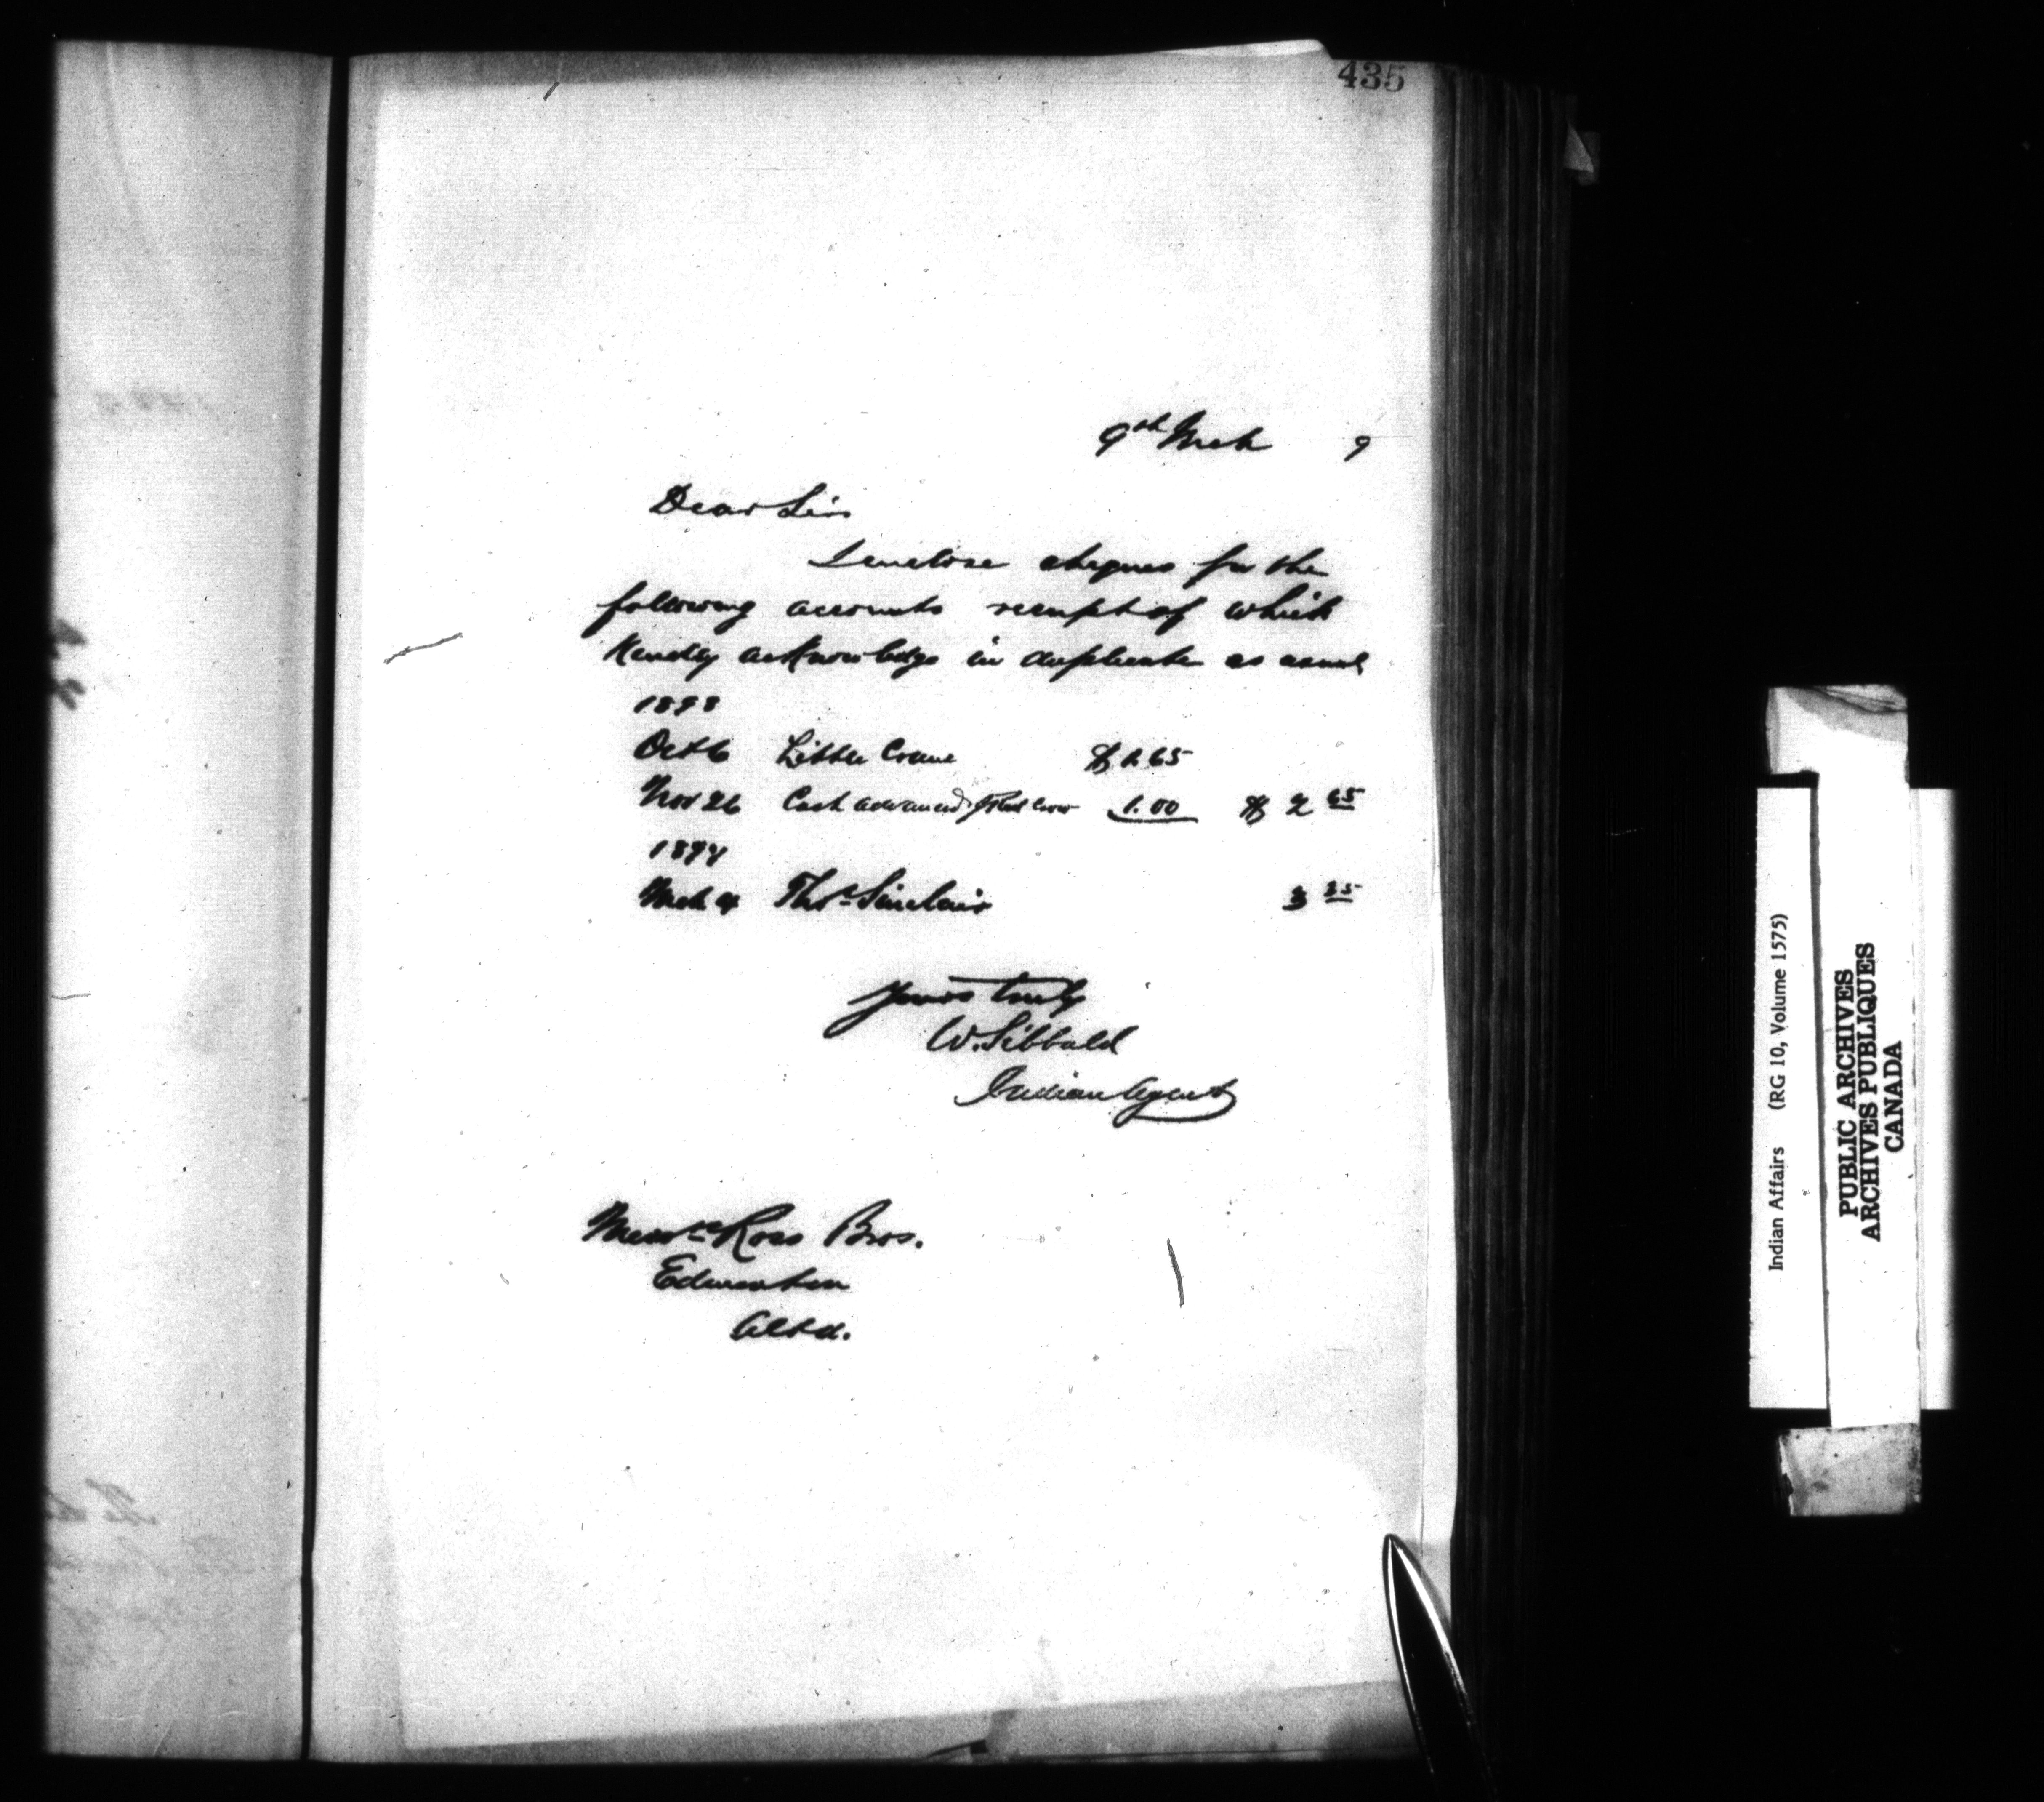 435
9th Mch 9
Dear Sir
I enclose cheques for the
following accounts receipt of which
Kindly acknowledge in duplicate as usual
1898
Oct 6 Little Crane $1.65
Nov 26 Cash advanced 1.00 $ 2 65
1899
Mch 4 Thos Sinclair 3 25
Yours truly
W. Sibbald
Indian Agent
Messrs Ross Bros.
Edmonton
Alta.
Indian Affairs (RG 10, Volume 1575)
PUBLIC ARCHIVES
ARCHIVES PUBLIQUES
CANADA